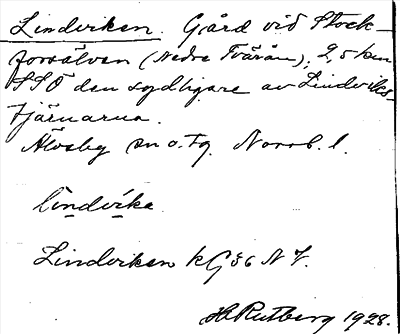 Lindviken. Gård vid Stock-
forsälven (Nedre Tvärån), 2,5 km
SSÖ den sydligare av Lindviks-
tjärnarna.
Älvsby sn o. tg. Norrb. l.
lindvika
Lindviken kG 36 N V.
H Rutberg 1928.